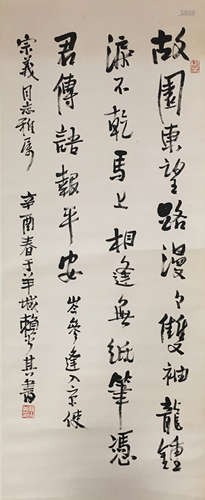 故園東望路漫々雙袖龍鍾
淚不乾馬上相逢無紙筆憑
君傳語報平安 岑參逢入京使
宗義同志雅屬
辛酉春于羊城賴少其書